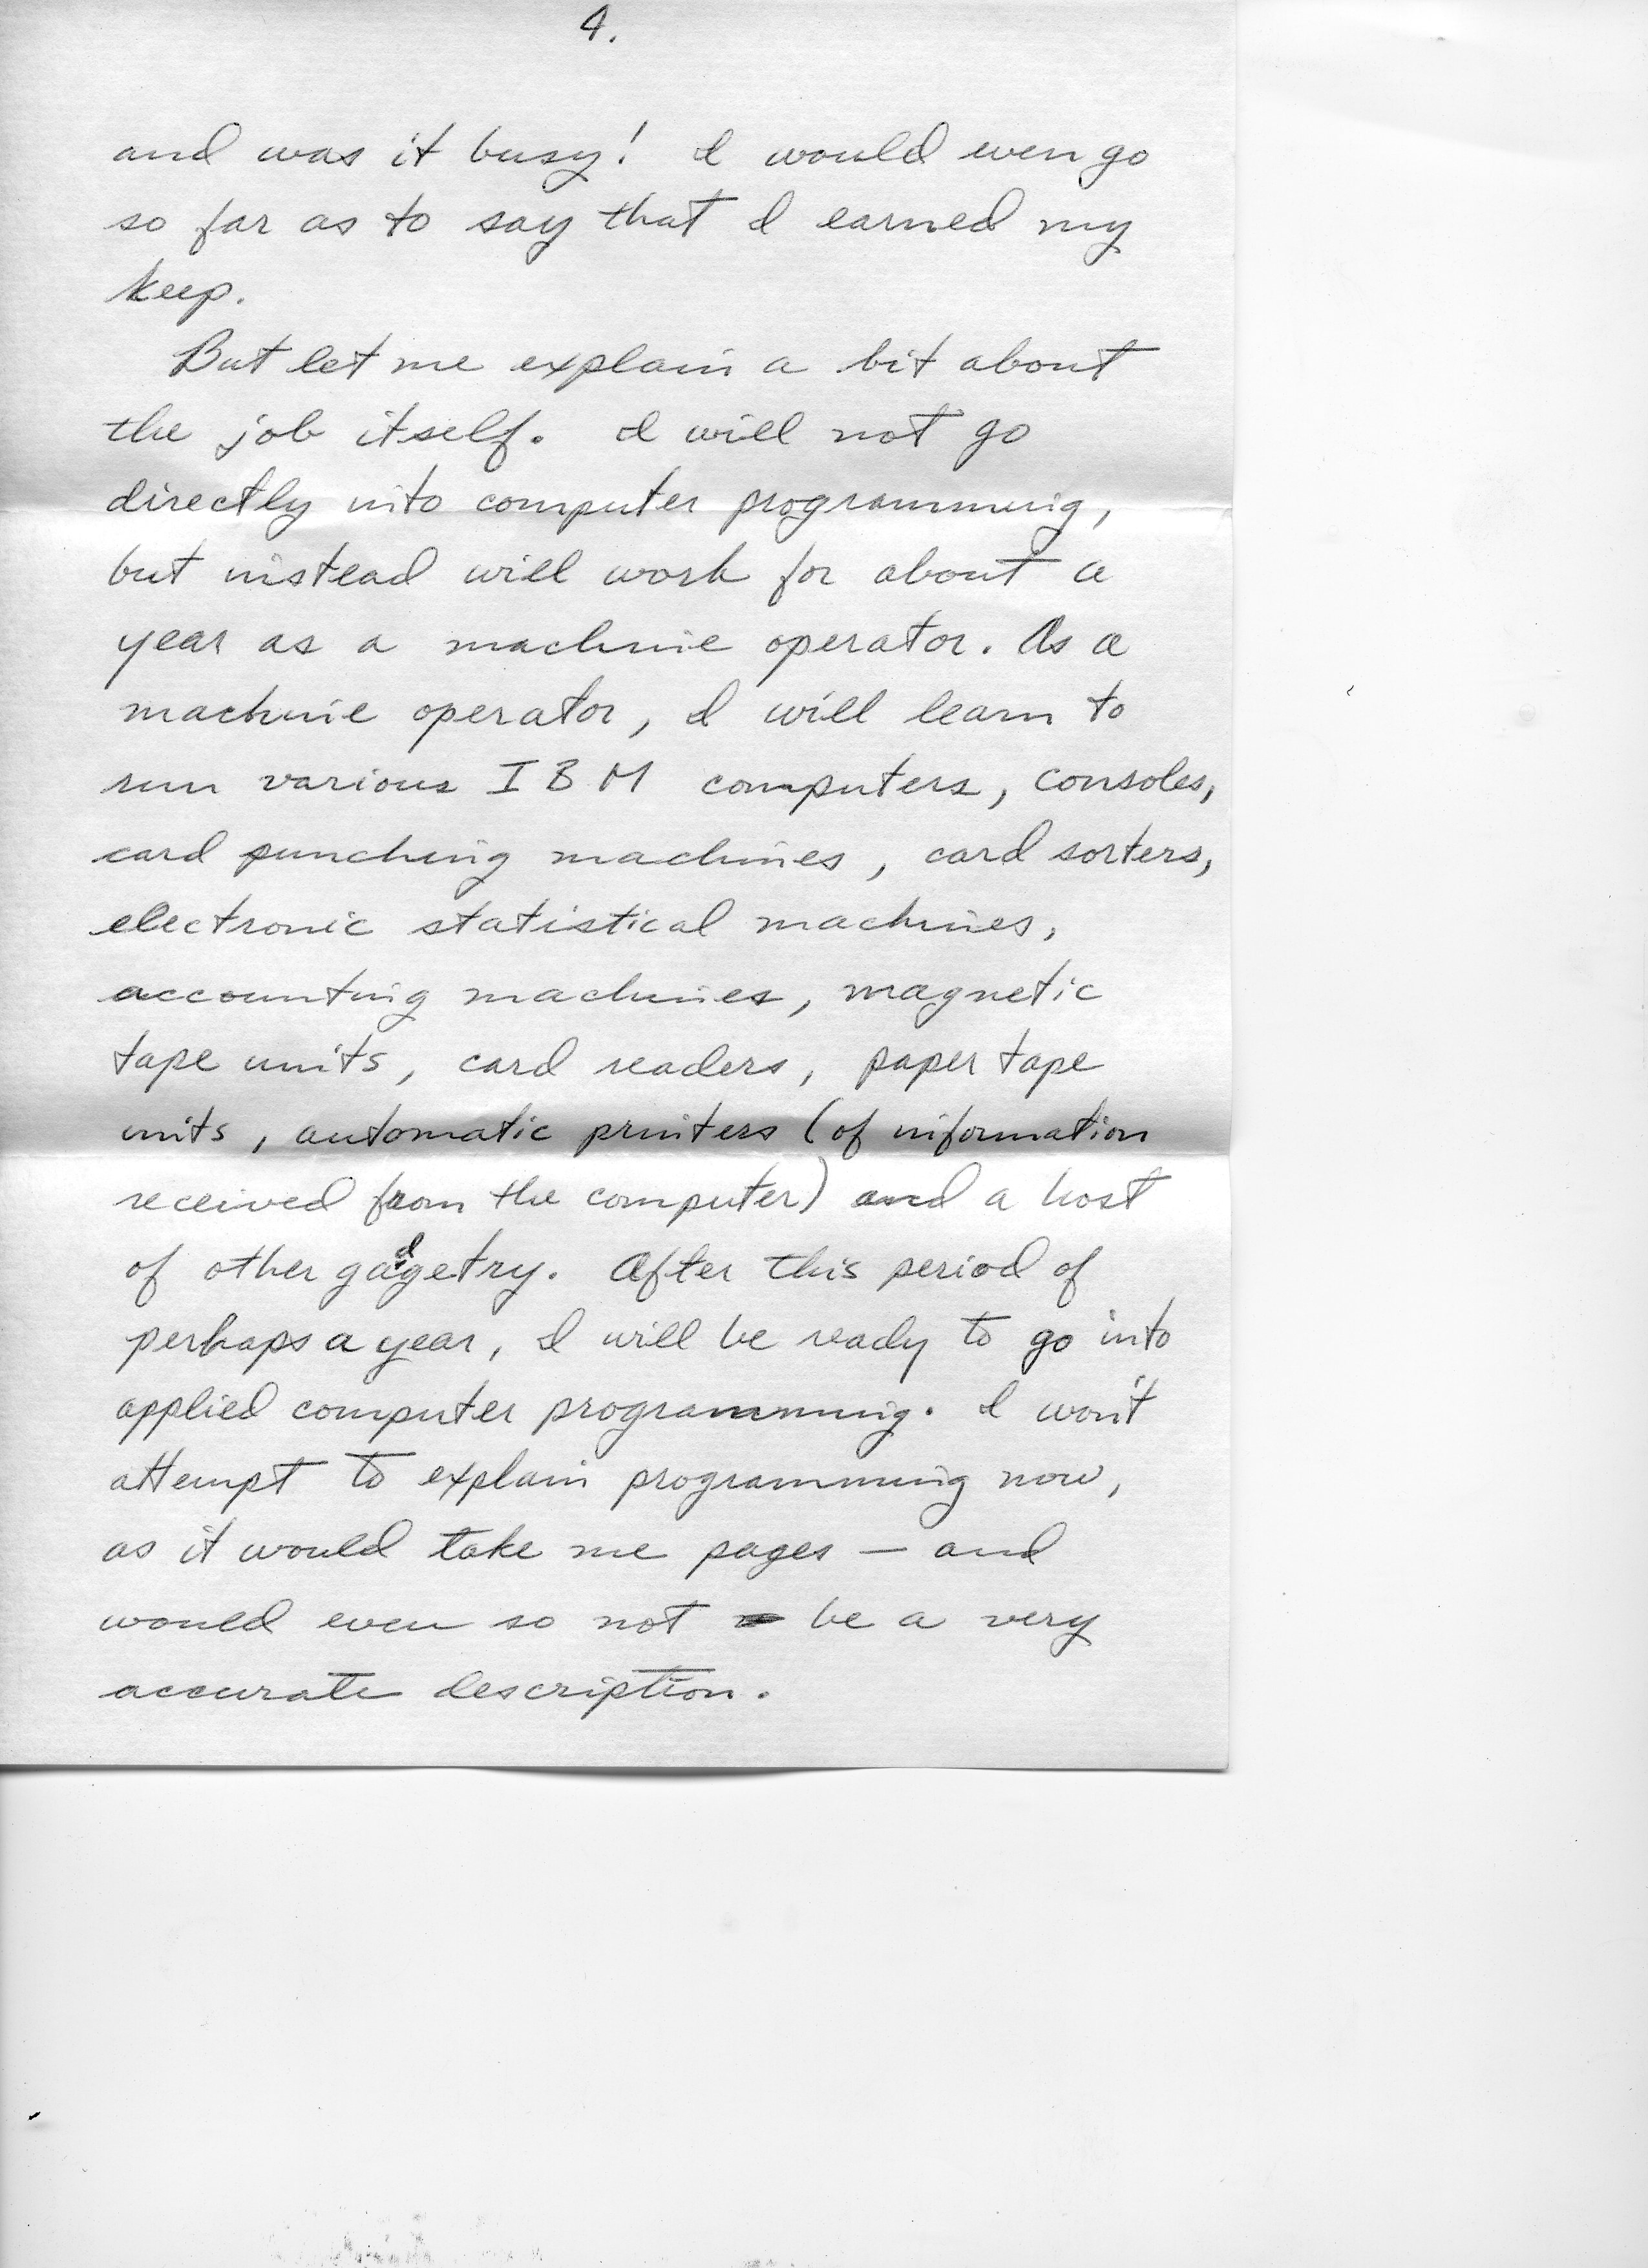 4.
and was it busy! I would even go
so far as to say that I earned my
keep.
But let me explain a bit about
the job itself. I will not go
directly into computer programming,
but instead will work for about a
year as a machine operator. As a
machine operator, I will learn to
run various IBM computers, consoles,
card punching machines, card sorters,
electronic statistical machines,
accounting machines, magnetic
tape units, card readers, paper tape
units, automatic printers (of information
received from the computer) and a host
of other gadgetry. After this period of
perhaps a year, I will be ready to go into
applied computer programming. I won't
attempt to explain programming now,
as it would take me pages — and
would even so not be a very
accurate description.